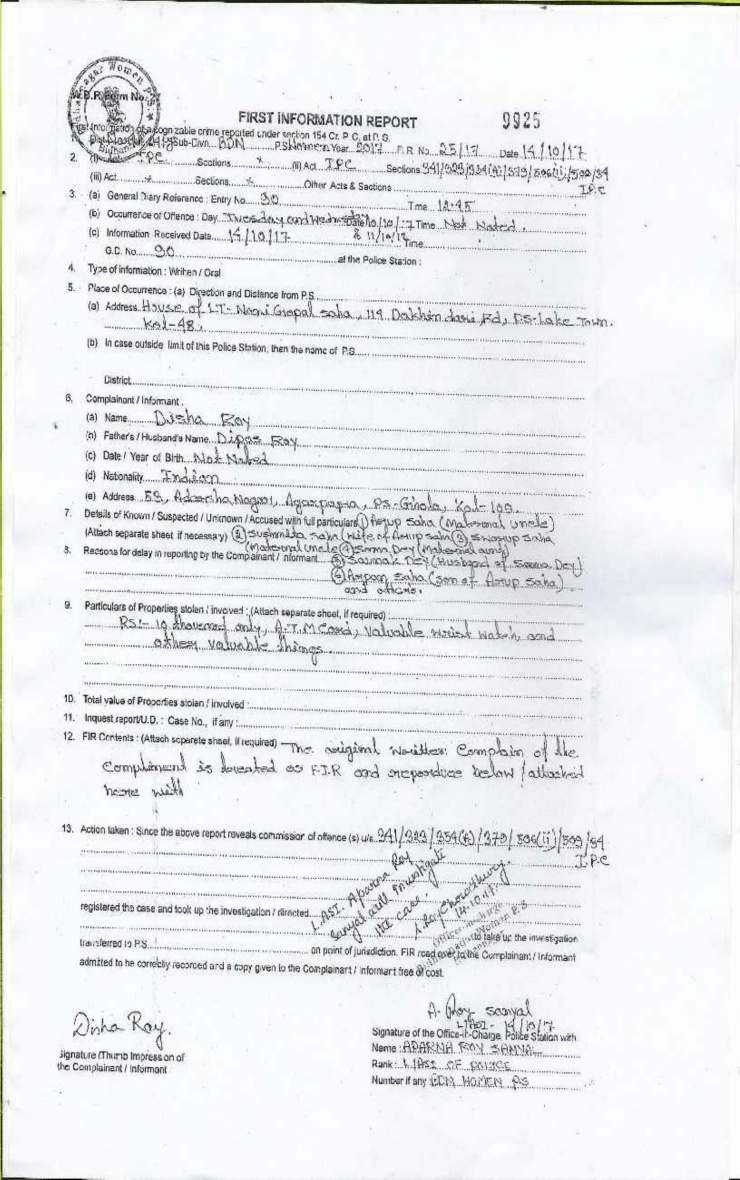 Women P.S.
W.B.P. Form No.
FIRST INFORMATION REPORT
9925
First Information of a cogn zable crime reported under section 154 Cr. P. C. at P. S.
Sub-Divn. BDN P.S. Women Year 2017 F.I.R No. 25/17 Date 14/10/17
2. (i) Act IPC Sections x (ii) Act I.P.C Sections 341/323/354(A)/379/506(ii)/509/34
I.P.C
(iii) Act x Sections x Other Acts & Sections
3. (a) General Diary Reference : Entry No. 30 Time 12:45
(b) Occurrence of Offence : Day Tuesday and Wednesday Date 10/10/17 Time Not Noted.
& 11/10/17
(c) Information Received Date 14/10/17 Time
G.D. No. 30 at the Police Station :
4. Type of information : Written / Oral
5. Place of Occurrence : (a) Direction and Distance from P.S.
(a) Address House of LT- Nani Gopal saha, 114 Dakhindari Rd, P.S-Lake Town.
Kol-48,
(b) In case outside limit of this Police Station, then the name of P.S.
District
6. Complainant / Informant .
(a) Name Disha Roy
(b) Father's / Husband's Name Dipas Roy
(c) Date / Year of Birth Not Noted
(d) Nationality Indian
(e) Address Adarsha Nagar, Agarpara, PS-Ghola, Kol-109.
7. Details of Known / Suspected / Unknown / Accused with full particulars (1) Arup Saha (Maternal uncle)
(Attach separate sheet if necessary) (2) Sushmita Saha (wife of Arup saha (3) Swarup Saha
(Maternal uncle (4) Soma Dey (Maternal aunt)
8. Reasons for delay in reporting by the Complainant / Informant (5) Dey (Husband of Soma Dey)
(6) Arpan Saha (son of Arup Saha)
and others.
9. Particulars of Properties stolen / invoved : (Attach separate sheet, if required)
RS:- 10 thousand only, A.T.M Card, valuable wrist watch, and
other valuable things.
10. Total value of Properties stolen / involved :
11. Inquest report/U.D. : Case No., if any :
12. FIR Contents : (Attach separate sheet, if required) The original written Complain of the
Complainent is treated as F.I.R and reproduce below / attached
here with
13. Action taken : Since the above report reveals commission of offence (s) u/s. 341/323/354(A)/379/506(ii)/509/34
I.P.C
L/ASI. Aparna Roy
Sanyal will investigate
the case.
Roy Chowdhury.
14.10.17
Officer-in-charge
Women P.S
registered the case and took up the investigation / directed
to take up the investigation
transferred to P.S. on point of jurisdiction. FIR read over to the Complainant / Informant
admitted to be correctly recorded and a copy given to the Complainant / Informant free of cost.
Disha Roy.
Signature (Thumb Impression of
the Complainant / Informant
A. Roy Sanyal
L/ASI - 14/10/17
Signature of the Office-in-Charge, Police Station with
Name : APARNA ROY SANYAL
Rank : L/ASI OF POLICE
Number if any BDN WOMEN PS